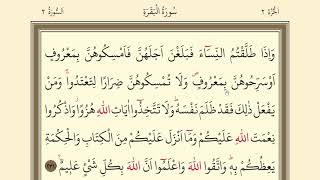 الجزء ٢ سورة البقرة السورة ٢
وَاِذَا طَلَّقْتُمُ النِّسَٓاءَ فَبَلَغْنَ اَجَلَهُنَّ فَاَمْسِكُوهُنَّ بِمَعْرُوفٍ
اَوْ سَرِّحُوهُنَّ بِمَعْرُوفٍۖ وَلَا تُمْسِكُوهُنَّ ضِرَارًا لِتَعْتَدُواۚ وَمَنْ
يَفْعَلْ ذٰلِكَ فَقَدْ ظَلَمَ نَفْسَهُۜ وَلَا تَتَّخِذُٓوا اٰيَاتِ اللّٰهِ هُزُوًاۘ وَاذْكُرُوا
نِعْمَتَ اللّٰهِ عَلَيْكُمْ وَمَٓا اَنْزَلَ عَلَيْكُمْ مِنَ الْكِتَابِ وَالْحِكْمَةِ
يَعِظُكُمْ بِهٖۜ وَاتَّقُوا اللّٰهَ وَاعْلَمُٓوا اَنَّ اللّٰهَ بِكُلِّ شَيْءٍ عَلٖيمٌ ﴿٢٣١﴾